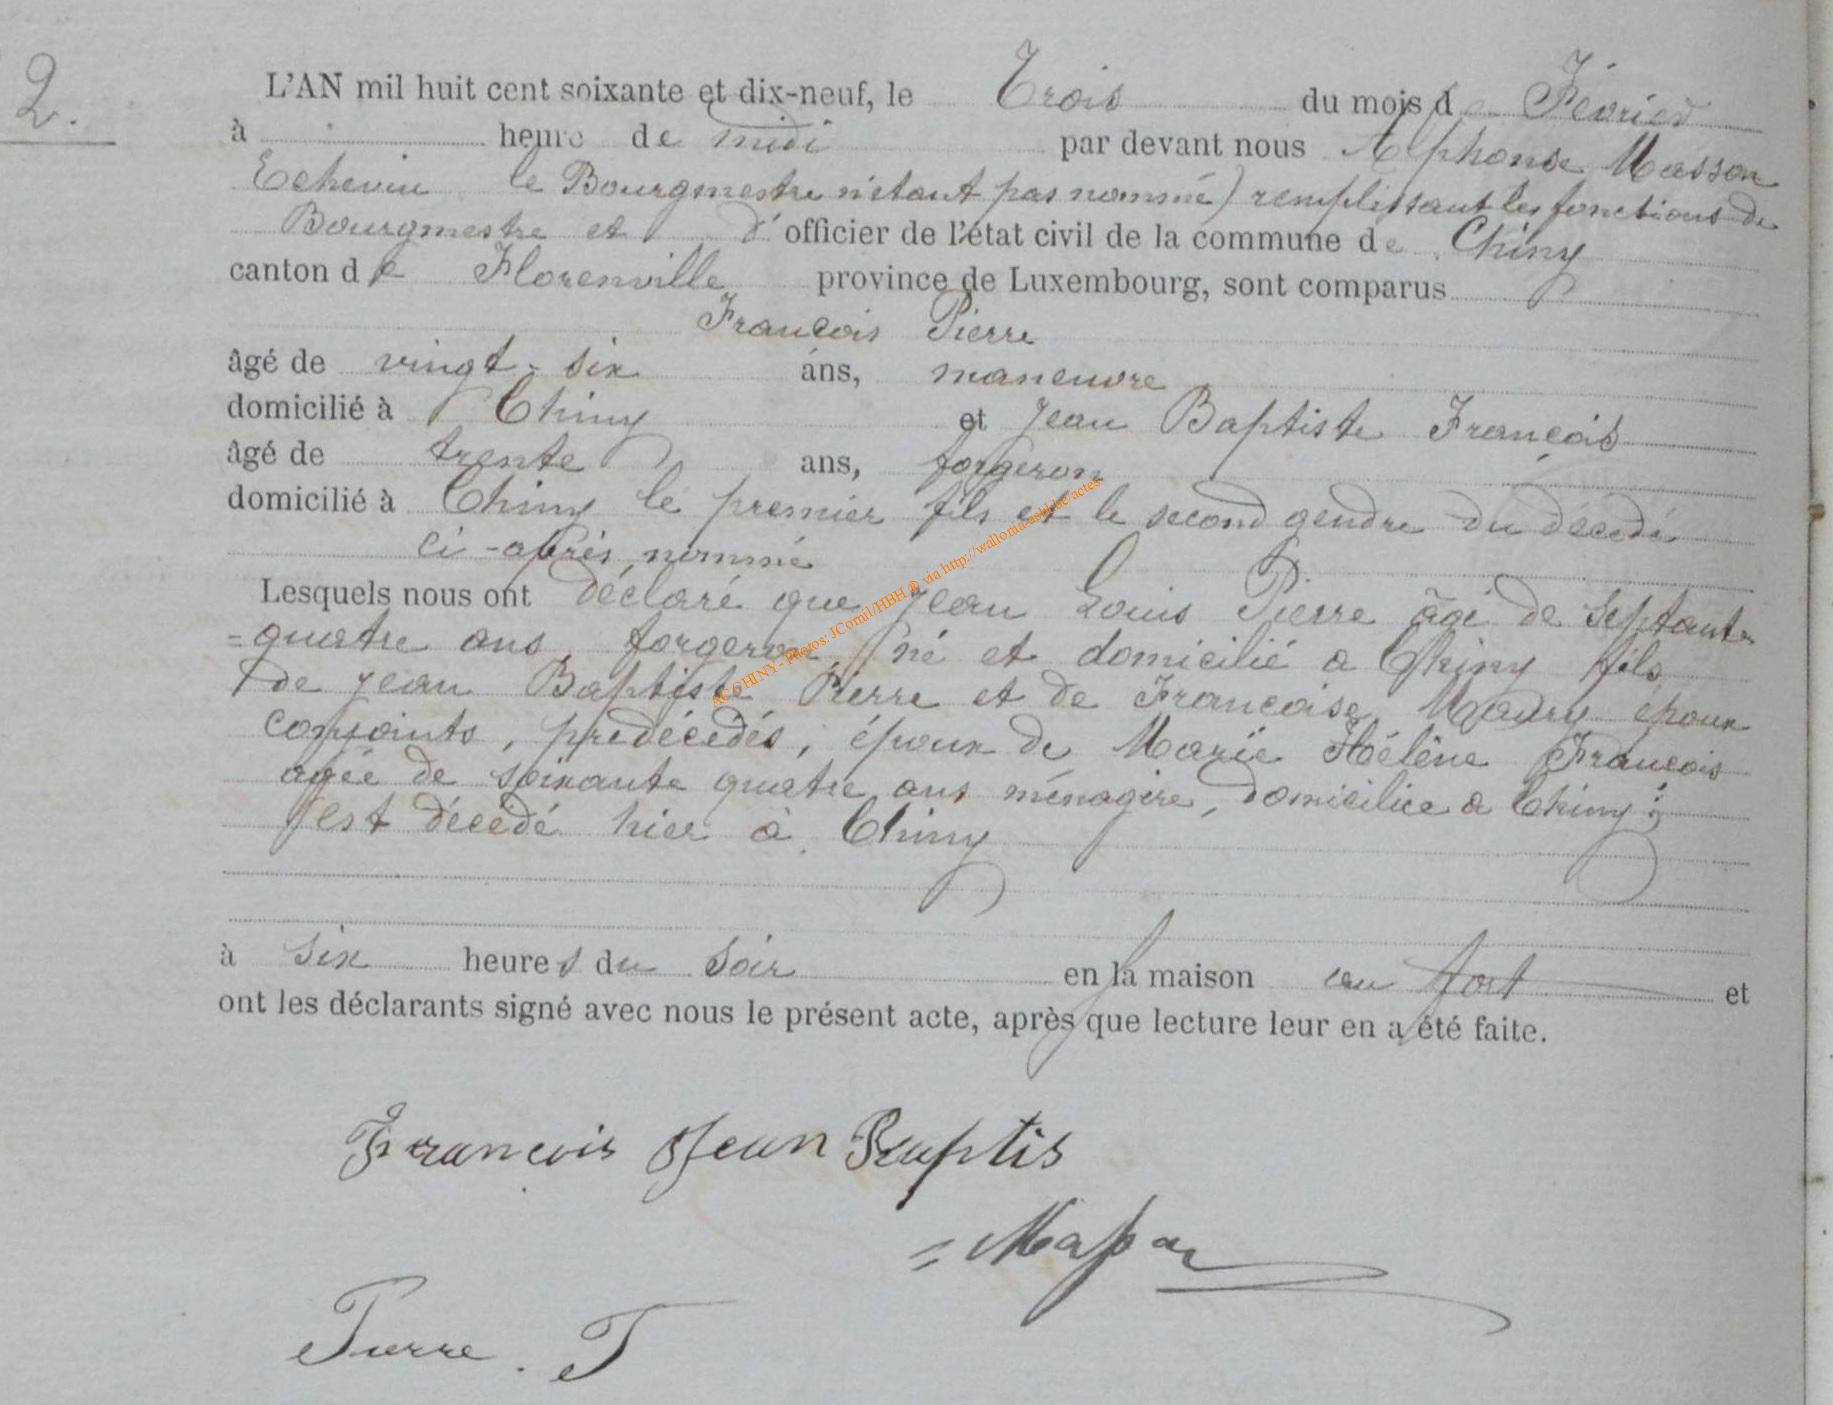 2.
L'AN mil huit cent soixante et dix-neuf, le Trois du mois de Février
à heure de midi par devant nous Alphonse Masson
Echevin le Bourgmestre n'étant pas nommé) remplissant les fonctions de
Bourgmestre et d' officier de l'état civil de la commune de Chiny
canton de Florenville province de Luxembourg, sont comparus
François Pierre
âgé de vingt-six ans, maneuvre
domicilié à Chiny et Jean Baptiste François
âgé de trente ans, forgeron
domicilié à Chiny le premier fils et le second gendre du décédé
ci-après nommé
Lesquels nous ont déclaré que Jean Louis Pierre âgé de septante
=quatre ans forgeron né et domicilié a Chiny fils
de Jean Baptiste Pierre et de Françoise epoux
conjoints, prédécédés, époux de Marie Hélène François
agée de soixante quatre ans ménagère, domiciliée a Chiny;
est décédé hier à Chiny
à six heures du soir en la maison au fort et
ont les déclarants signé avec nous le présent acte, après que lecture leur en a été faite.
François Jean Baptis
Masson
Pierre. F
ACCHINY - Photos: JComil/HBH @ via http://wallonia-asbl.be/actes